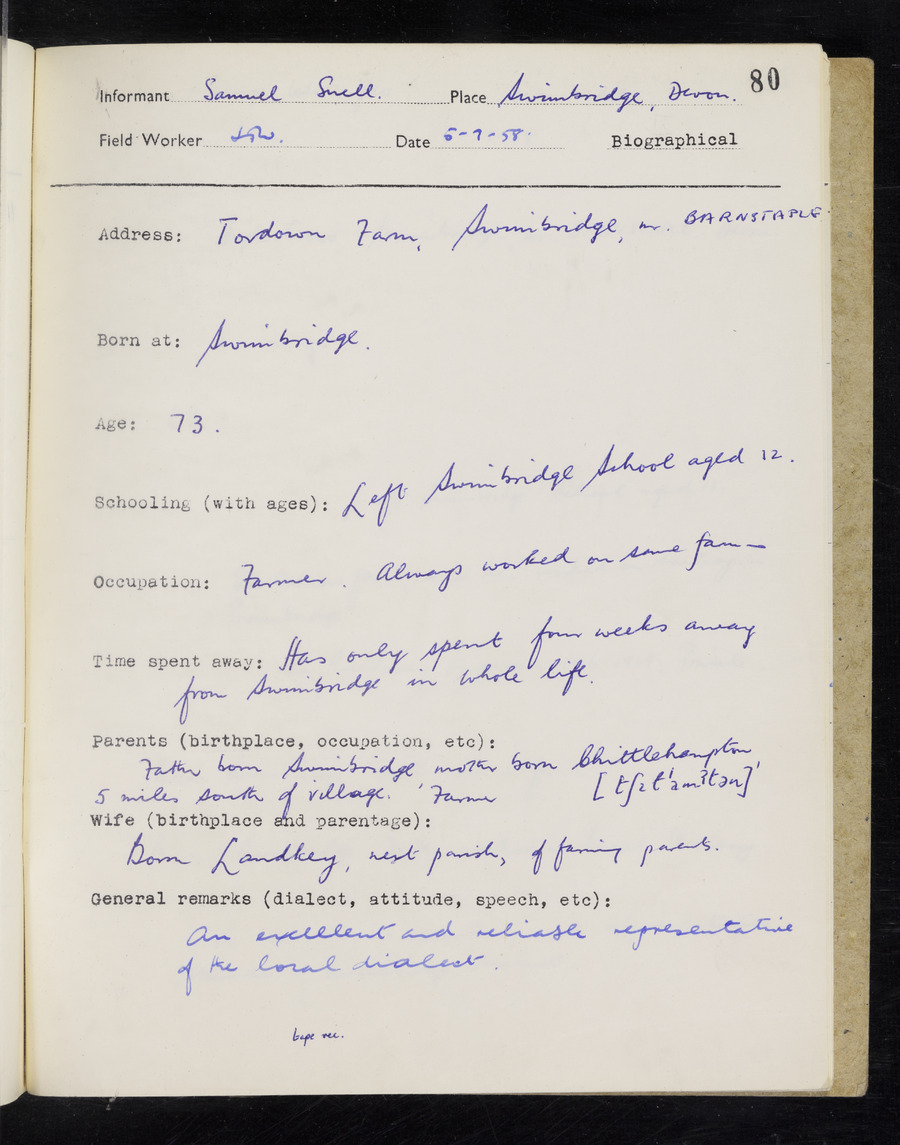 80
Informant Samuel Snell. Place Swimbridge, Devon.
Field Worker Date 5-7-58. Biographical
Address: Tordown Farm, Swimbridge, nr. BARNSTAPLE.
Born at: Swimbridge.
Age: 73.
Schooling (with ages): Left Swimbridge School aged 12.
Occupation: Farmer. Always worked on same farm
Time spent away: Has only spent four weeks away
from Swimbridge in whole life.
Parents (birthplace, occupation, etc):
Father born Swimbridge, mother born Chittlehampton,
5 miles south of village. Farmer
Wife (birthplace and parentage):
Born Landkey, next parish, of farming parents.
General remarks (dialect, attitude, speech, etc):
An excelllent and reliable representative
of the local dialect.
tape rec.